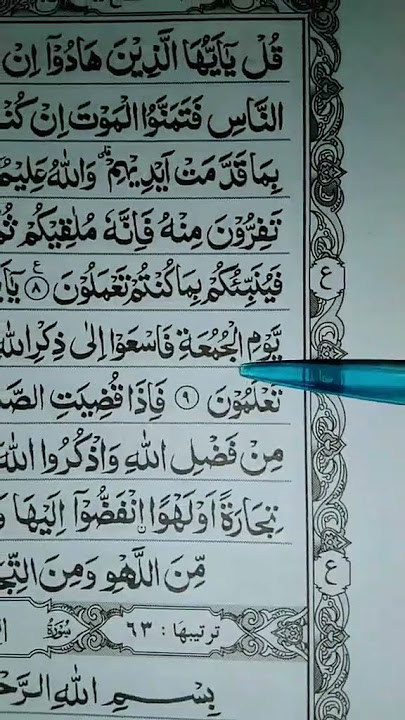 قُلْ يٰٓاَيُّهَا الَّذِيْنَ هَادُوْٓا اِنْ
النَّاسِ فَتَمَنَّوُا الْمَوْتَ اِنْ كُنْـ
بِمَا قَدَّمَتْ اَيْدِيْهِمْ ۗ وَاللّٰهُ عَلِيْمٌ
تَفِرُّوْنَ مِنْهُ فَاِنَّهٗ مُلٰقِيْكُمْ ثُمَّ
فَيُنَبِّئُكُمْ بِمَا كُنْتُمْ تَعْمَلُوْنَ ۸ ع
ع
يَّوْمِ الْجُمُعَةِ فَاسْعَوْا اِلٰى ذِكْرِ اللّٰهِ
تَعْلَمُوْنَ ۹ فَاِذَا قُضِيَتِ
مِنْ فَضْلِ اللّٰهِ وَاذْكُرُوا اللّٰهَ
تِجَارَةً اَوْ لَهْوًا انْفَضُّوْٓا اِلَيْهَا
مِّنَ اللَّهْوِ وَمِنَ
ع
ترتيبها : ٦٣ سُوْرَةُ
بِسْمِ اللّٰهِ